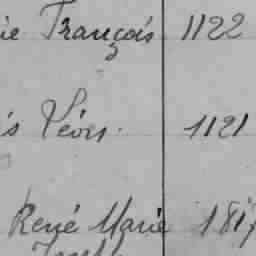 ie François 1122
is Léon. 1121
René Marie 181